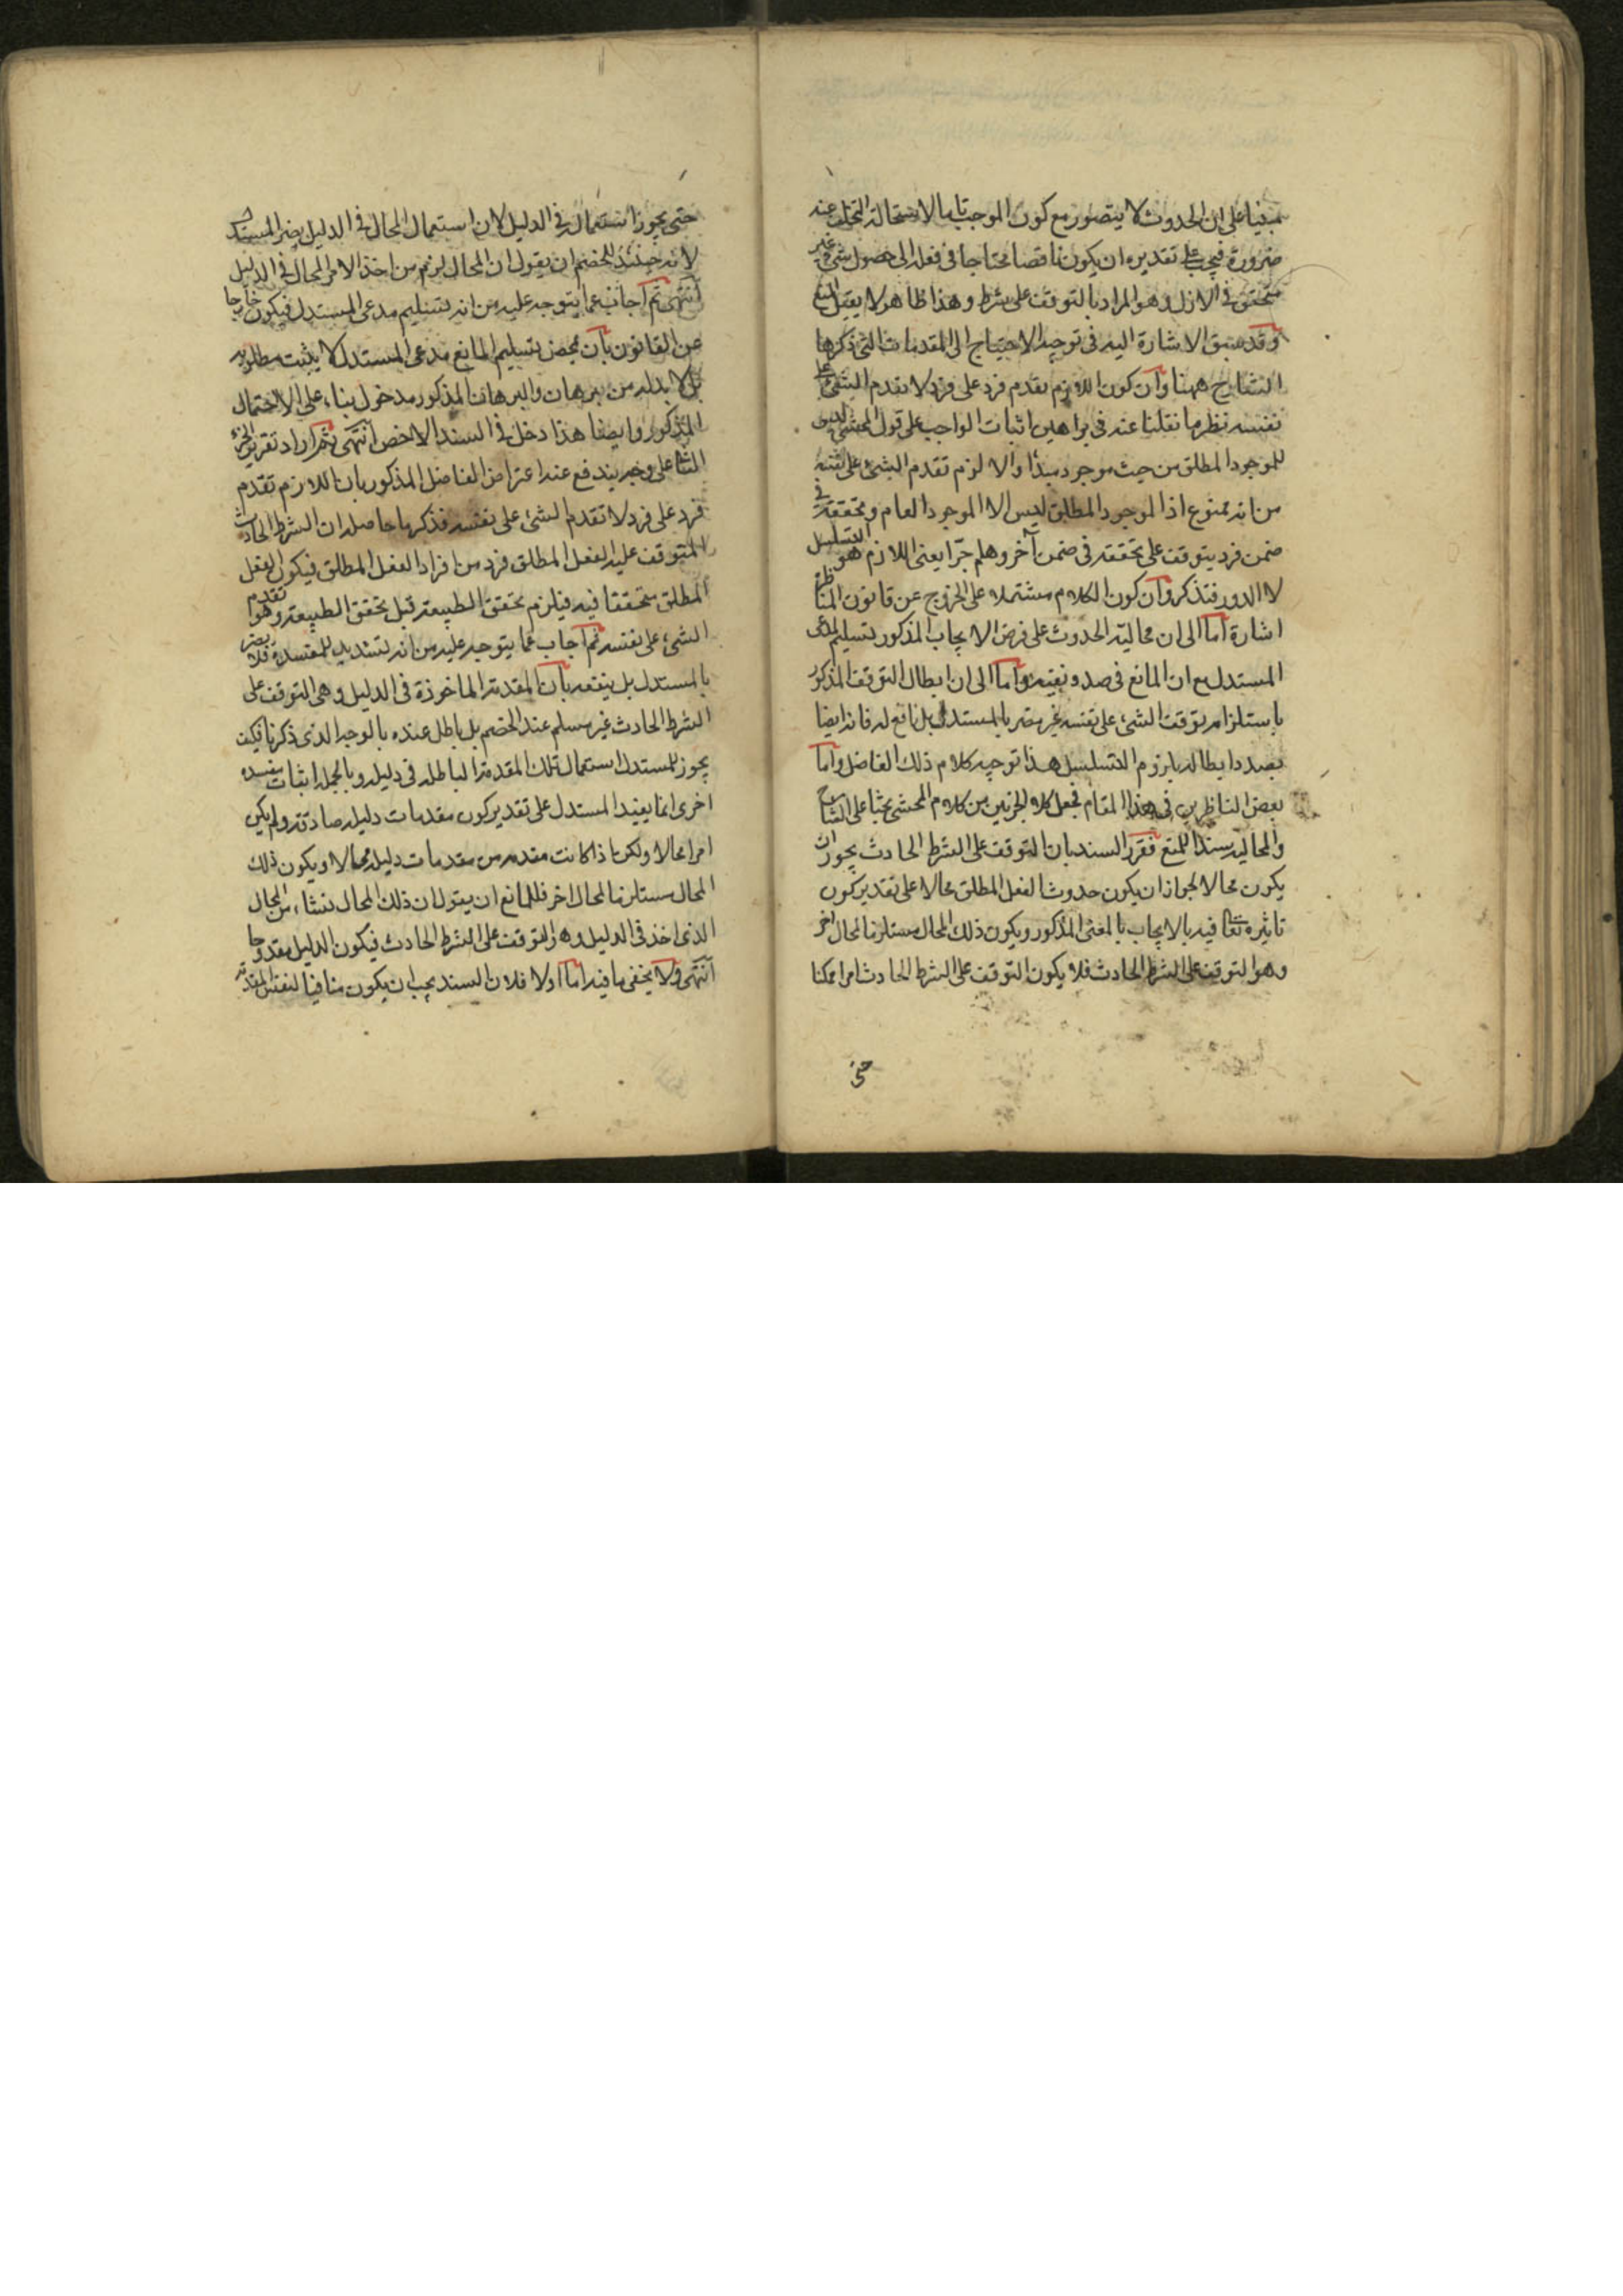 مبنيا على ان الحدوث لا يتصور مع كون الموجب تاما لاستحالة التخلف عنه
ضرورة فيجب على تقديره ان يكون ناقصا محتاجا فى فعله الى حصول شئ غير
متحقق فى الازل وهو المراد بالتوقف على شرط وهذا ظاهر لا يقبل المنع
وقد سبق الاشارة اليه فى توجيه الاحتياج الى المقدمات التى ذكرها
الشارح ههنا وان كون اللازم تقدم فرد على فرد لا تقدم الشئ على
نفسه نظير ما نقلنا عنه فى براهين اثبات الواجب على قول المحشى ليس
للموجود المطلق من حيث موجود مبدأ والا لزم تقدم الشئ على نفسه
من انه ممنوع اذ الموجود المطلق ليس الا الموجود العام وتحققه فى
ضمن فرد يتوقف على تحققه فى ضمن آخر وهلم جرّا يعنى اللازم هو التسلسل
لا الدور فتذكر وان كون الكلام مشتملا على الخروج عن قانون المناظرة
اشارة اما الى ان محالية الحدوث على فرض الايجاب المذكور تسليم لمدعى
المستدل مع ان المانع فى صدد نفيه واما الى ان ابطال التوقف المذكور
باستلزامه توقف الشئ على نفسه غير مضر بالمستدل بل نافع له فانه ايضا
بصدد ابطاله بلزوم التسلسل هذا توجيه كلام ذلك الفاضل واما
بعض الناظرين فى هذا المقام فجعل كلا الجزئين من كلام المحشى بحثا على الشارح
والمحالية سندا للمنع فقرر السند بان التوقف على الشرط الحادث يجوز ان
يكون محالا لجواز ان يكون حدوث الفعل المطلق محالا على تقدير كون
تاثيره تعا فيه بالايجاب بالمعنى المذكور ويكون ذلك المحال مستلزما لمحال اخر
وهو التوقف على الشرط الحادث فلا يكون التوقف على الشرط الحادث امرا ممكنا
حتى
حتى يجوز استعماله فى الدليل لان استعمال المحال فى الدليل يضر المستدل
لانه حينئذ للخصم ان يقول ان المحال لزم من اخذ الامر المحال فى الدليل
انتهى ثم اجاب عما يتوجه عليه من انه تسليم مدعى المستدل فيكون خارجا
عن القانون بان محض تسليم المانع مدعى المستدل لا يثبت مطلوبه
بل لا بد له من برهان والبرهان المذكور مدخول بناء على الاحتمال
المذكور وايضا هذا دخل فى السند الاخص انتهى ثم اراد تقرير الجزء
الثا على وجه يندفع عنه اعتراض الفاضل المذكور بان اللازم تقدم
فرد على فرد لا تقدم الشئ على نفسه فذكر ما حاصله ان الشرط الحادث
المتوقف عليه الفعل المطلق فرد من افراد الفعل المطلق فيكون الفعل
المطلق متحققا فيه فيلزم تحقق الطبيعة قبل تحقق الطبيعة وهو تقدم
الشئ على نفسه ثم اجاب عما يتوجه عليه من انه تسديد للمفسدة فلا يضر
بالمستدل بل ينفعه بان المقدمة الماخوذة فى الدليل وهى التوقف على
الشرط الحادث غير مسلم عند الخصم بل باطل عنده بالوجه الذى ذكرنا فكيف
يجوز للمستدل استعمال تلك المقدمة الباطلة فى دليله وبالجملة اثبات مفسدة
اخرى انما يفيد المستدل على تقدير كون مقدمات دليله صادقة ولم يكن
امرا محالا ولكن اذا كانت مقدمه من مقدمات دليله محالا ويكون ذلك
المحال مستلزما لمحال اخر فللمانع ان يقول ان ذلك المحال نشاء من المحال
الذى اخذ فى الدليل وهو التوقف على الشرط الحادث فيكون الدليل مقدوحا
انتهى ولا يخفى ما فيه اما اولا فلان السند يجب ان يكون منافيا لنفس المقدمة